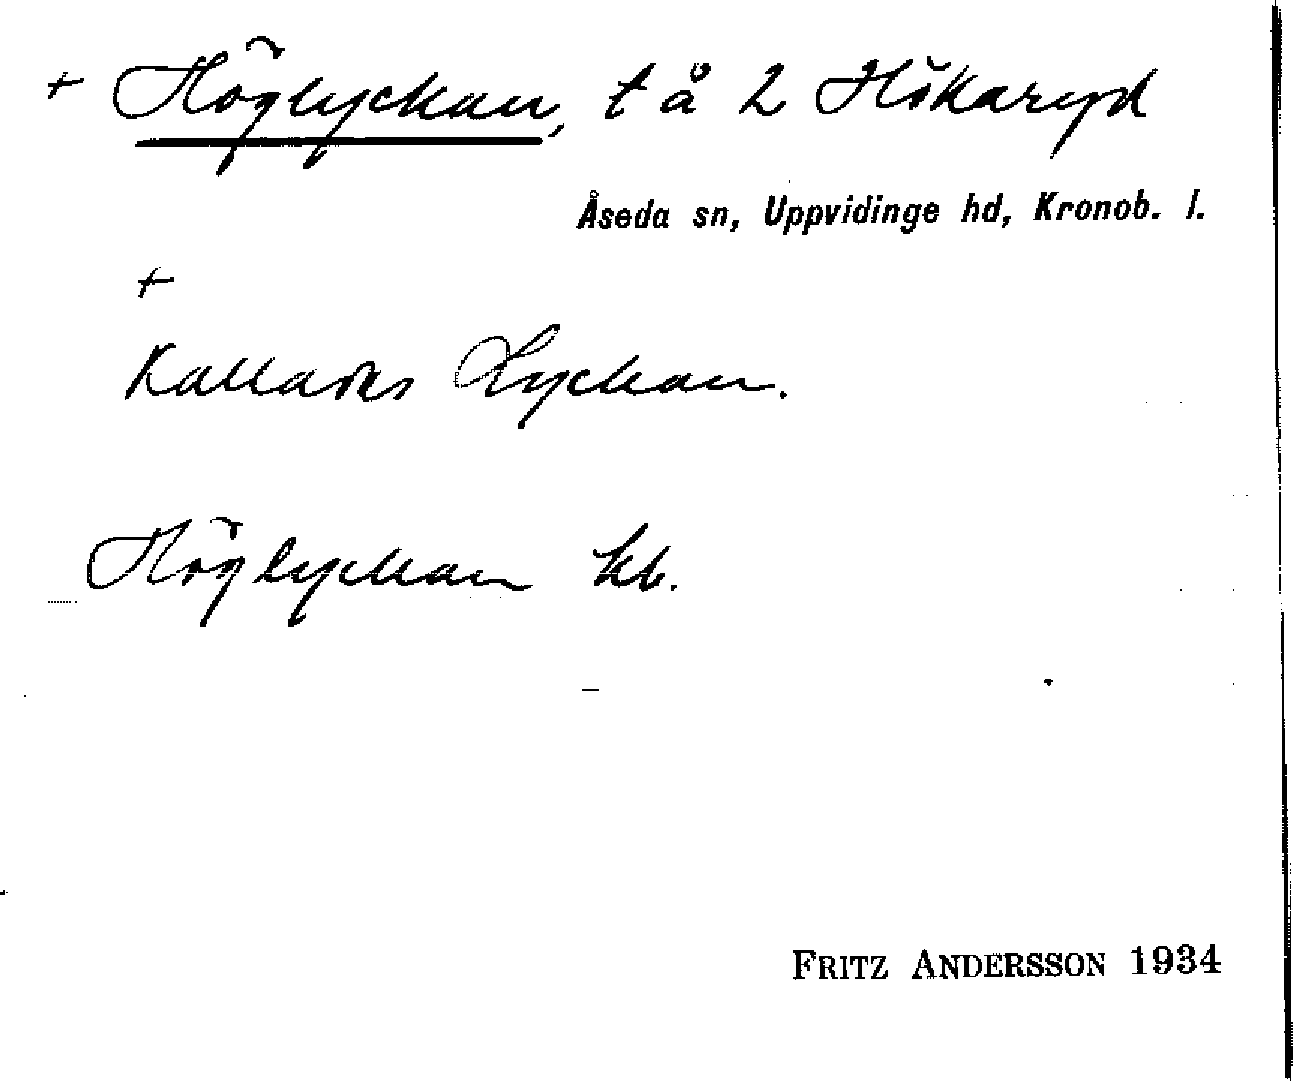 + Höglyckan, t å 2 Hökaryd
Åseda sn, Uppvidinge hd, Kronob. l.
+
Kallades Lyckan.
Höglyckan kb.
FRITZ ANDERSSON 1934